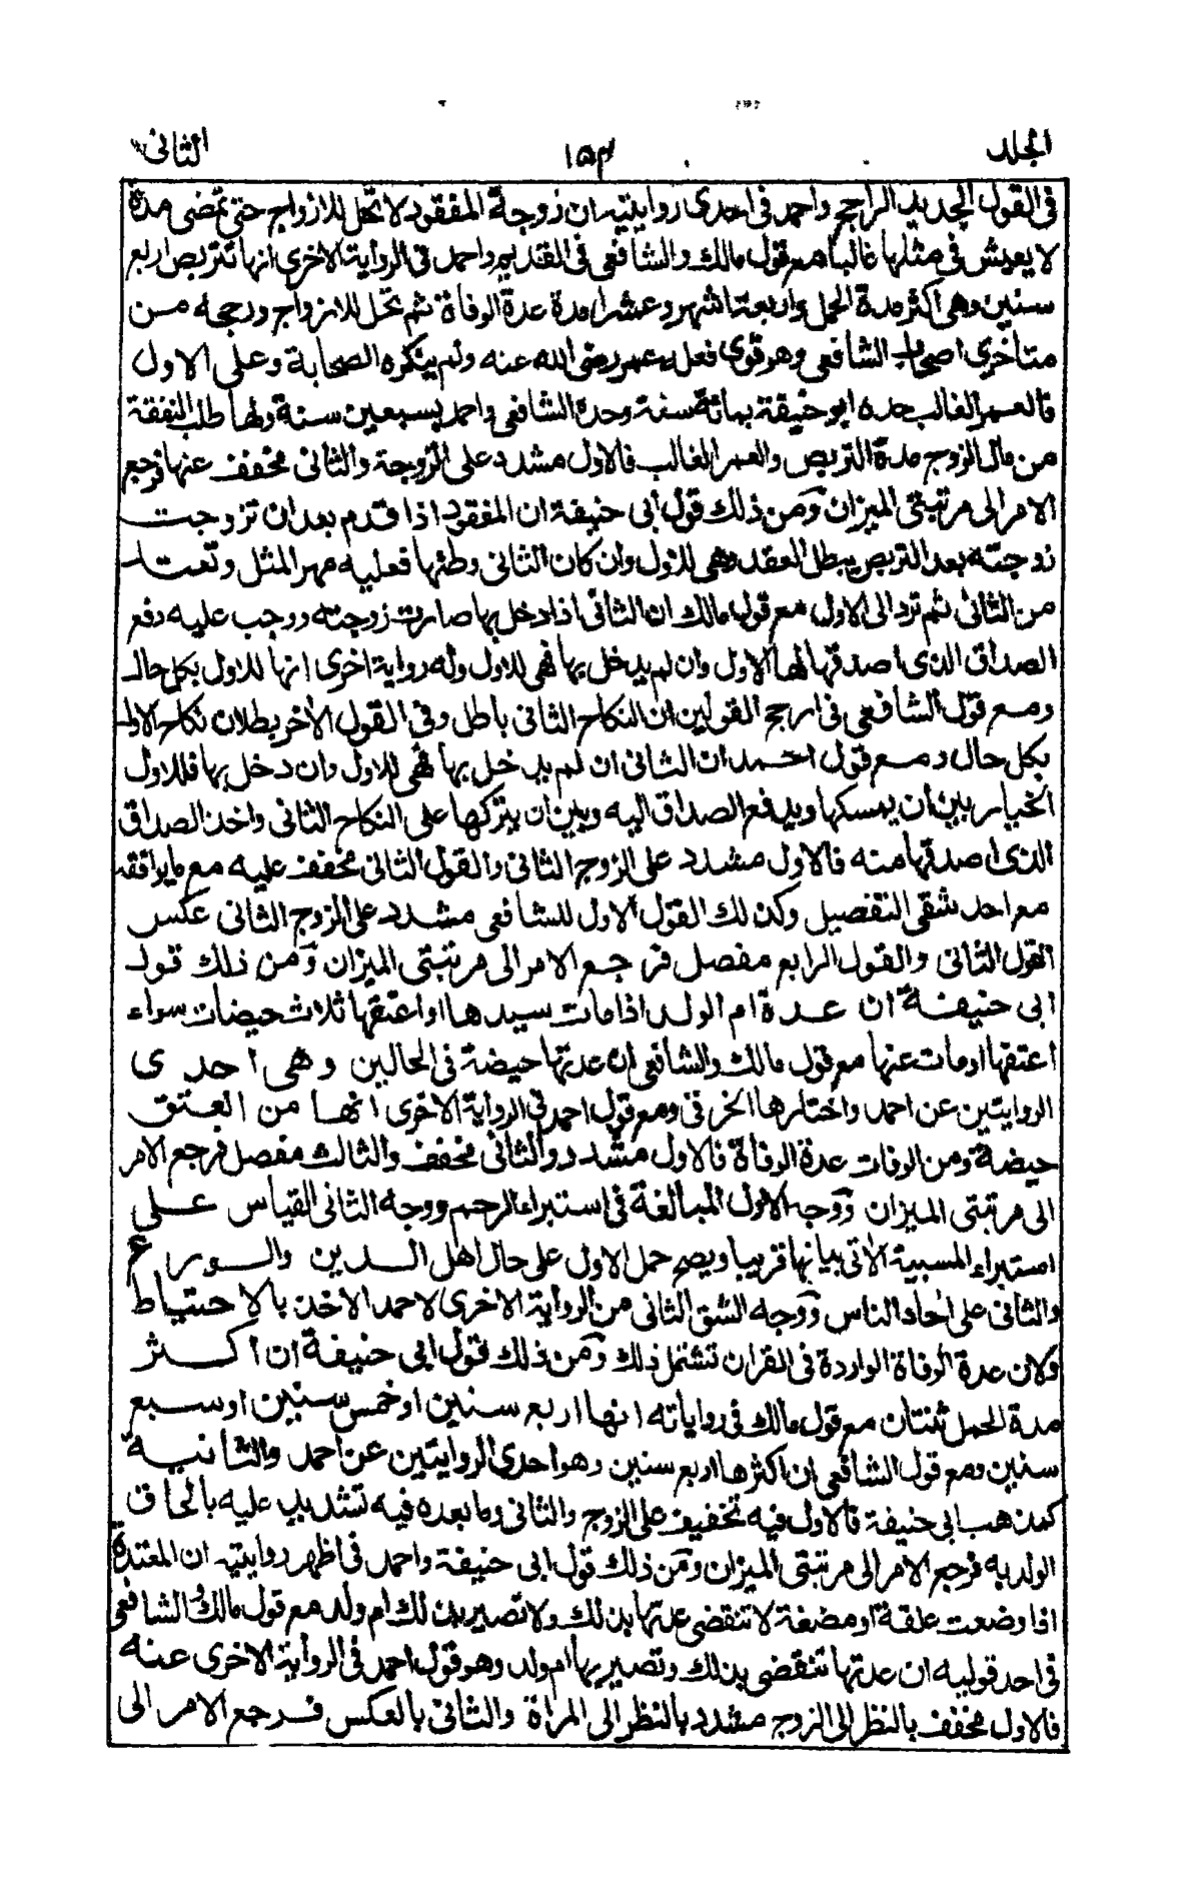 المجلد ١٥٣ الثانى
فى القول الجديد الراجح واحمد فى احدى روايتيه ان زوجة المفقود لا تحل للازواج حتى تمضى مدة
لا يعيش فى مثلها غالبا مع قول مالك والشافعى فى القديم واحمد فى الرواية الاخرى انها تتربص اربع
سنين وهى اكثر مدة الحمل واربعة اشهر وعشرا مدة عدة الوفاة ثم تحل للازواج ورجحه مـن
متاخرى اصحاب الشافعى وهو قوى فعله عمر رضى الله عنه ولم ينكره الصحابة وعلى الاول
فالعمر الغالب حده ابو حنيفة بمائة سنة وحده الشافعى واحمد بسبعين سنة ولها طلب النفقة
من مال الزوج مدة التربص والعمر الغالب فالاول مشدد على الزوجة والثانى مخفف عنها فرجع
الامر الى مرتبتى الميزان ومن ذلك قول أبى حنيفة ان المفقود اذا قدم بعد ان تزوجت
زوجته بعد التربص يبطل العقد وهى للاول وان كان الثانى وطئها فعليه مهر المثل وتعتد
من الثانى ثم ترد الى الاول مع قول مالك ان الثانى اذا دخل بها صارت زوجته ووجب عليه دفع
الصداق الذى اصدقها لها الاول وان لم يدخل بها فهى للاول وله رواية اخرى انها للاول بكل حال
ومـع قول الشافعى فى ارجح القولين ان النكاح الثانى باطل وفى القول الأخر بطلان نكاح الاول
بكل حال ومـع قول احـمد ان الثانى ان لم يدخل بها فهى للاول وان دخل بها فللاول
الخيار بين ان يمسكها ويدفع الصداق اليه وبين ان يتركها على النكاح الثانى واخذ الصداق
الذى اصدقها منه فالاول مشدد على الزوج الثانى والقول الثانى مخفف عليه مع ما يوافقه
مع احد شقى التفصيل وكذلك القول الاول للشافعى مشدد على الزوج الثانى عكس
القول الثانى والقول الرابع مفصل فرجع الامر الى مرتبتى الميزان ومن ذلك قول
ابى حنيفـة ان عـدة ام الولد اذا مات سيدها او اعتقها ثلاث حيضات سواء
اعتقها او مات عنها مع قول مالك والشافعى ان عدتها حيضة فى الحالين وهى احدى
الروايتين عن احمد واختارها الخرقى ومع قول احمد فى الرواية الاخرى انها من العتق
حيضة ومن الوفات عدة الوفاة فالاول مشدد والثانى مخفف والثالث مفصل فرجع الامر
الى مرتبتى الميزان ووجه الاول المبالغة فى استبراء الرحم ووجه الثانى القياس عـلى
استبراء المسبية الأتى بيانها قريبا ويصح حمل الاول على حال اهل الـدين والـورع
والثانى على احاد الناس ووجه الشق الثانى من الرواية الاخرى لاحمد الاخذ بالاحتياط
ولان عدة الوفاة الواردة فى القران تشتمل ذلك ومن ذلك قول ابى حنيفة ان أكـثر
مدة الحمل ثنتان مع قول مالك فى رواياته انها اربع سنين او خمس سنين او سـبع
سنين ومع قول الشافعى ان اكثرها اربع سنين وهو احدى الروايتين عن احمد والثانيـة
كمذهب ابى حنيفة فالاول فيه تخفيف على الزوج والثانى وما بعده فيه تشديد عليه بالحاق
الولد به فرجع الامر الى مرتبتى الميزان ومن ذلك قول ابى حنيفة واحمد فى اظهر روايتيه ان المعتدة
اذا وضعت علقة او مضغة لا تنقضى عدتها بذلك ولا تصير بذلك ام ولد مع قول مالك والشافعى
فى احد قوليه ان عدتها تنقضى بذلك وتصير بها ام ولد وهو قول احمد فى الرواية الاخرى عنه
فالاول مخفف بالنظر الى الزوج مشدد بالنظر الى المرأة والثانى بالعكس فـرجع الامر الى